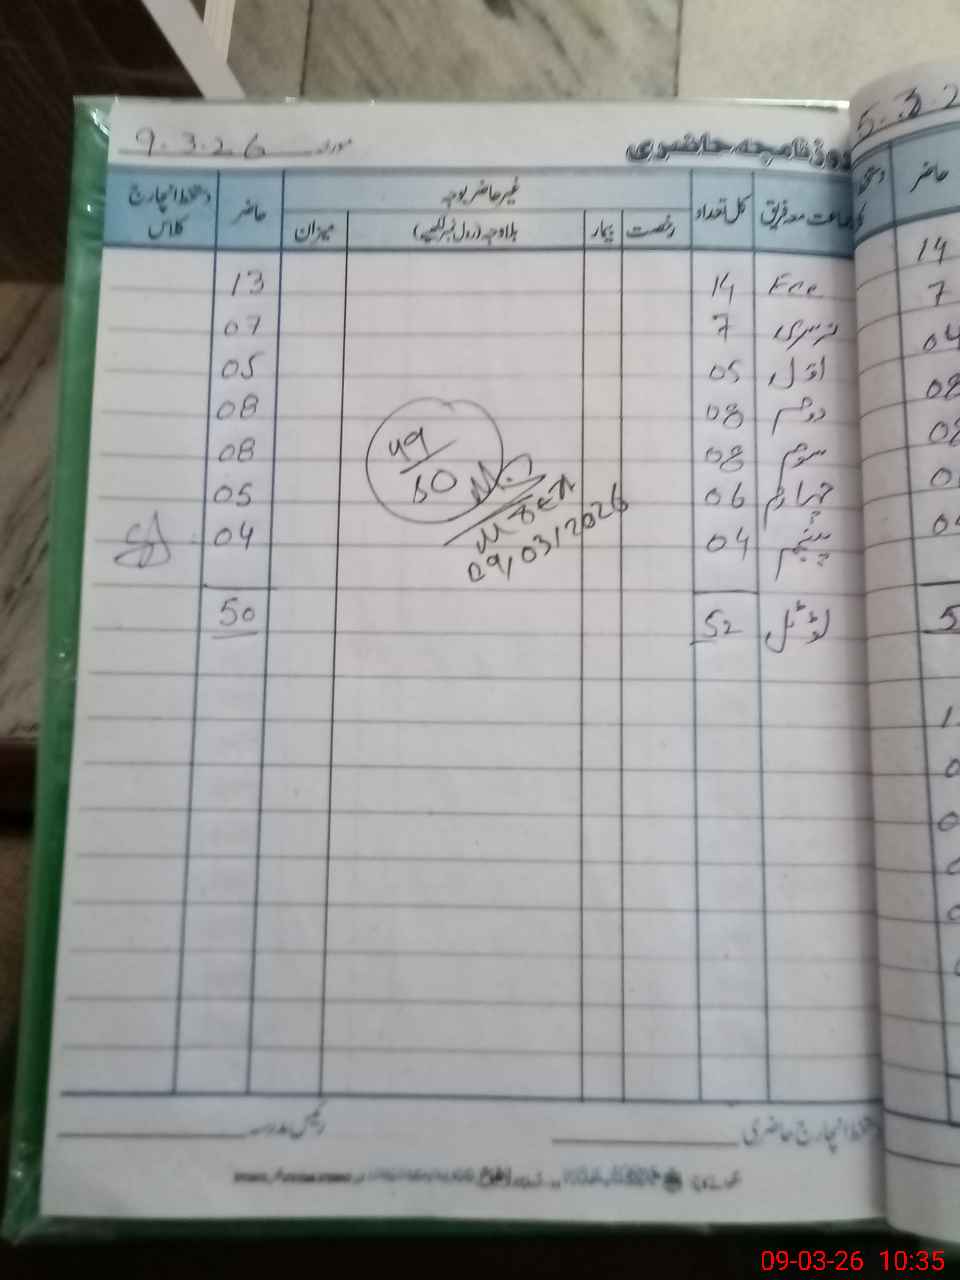 روزنامچہ حاضری مورخہ 9.3.26
جماعت معہ فریق کل تعداد غیر حاضر بوجہ حاضر دستخط انچارج کلاس
رخصت بیمار بلاوجہ (رول نمبر لکھیے) میزان
Ece 14 13
نرسری 7 07
اول 05 05
دوم 08 08
سوم 08 08
چہارم 06 05
پنجم 04 04
ٹوٹل 52 50
49/50
09/03/2026
دستخط انچارج حاضری رئیس مدرسہ
5.3.2
حاضر
14
7
04
08
08
09-03-26 10:35